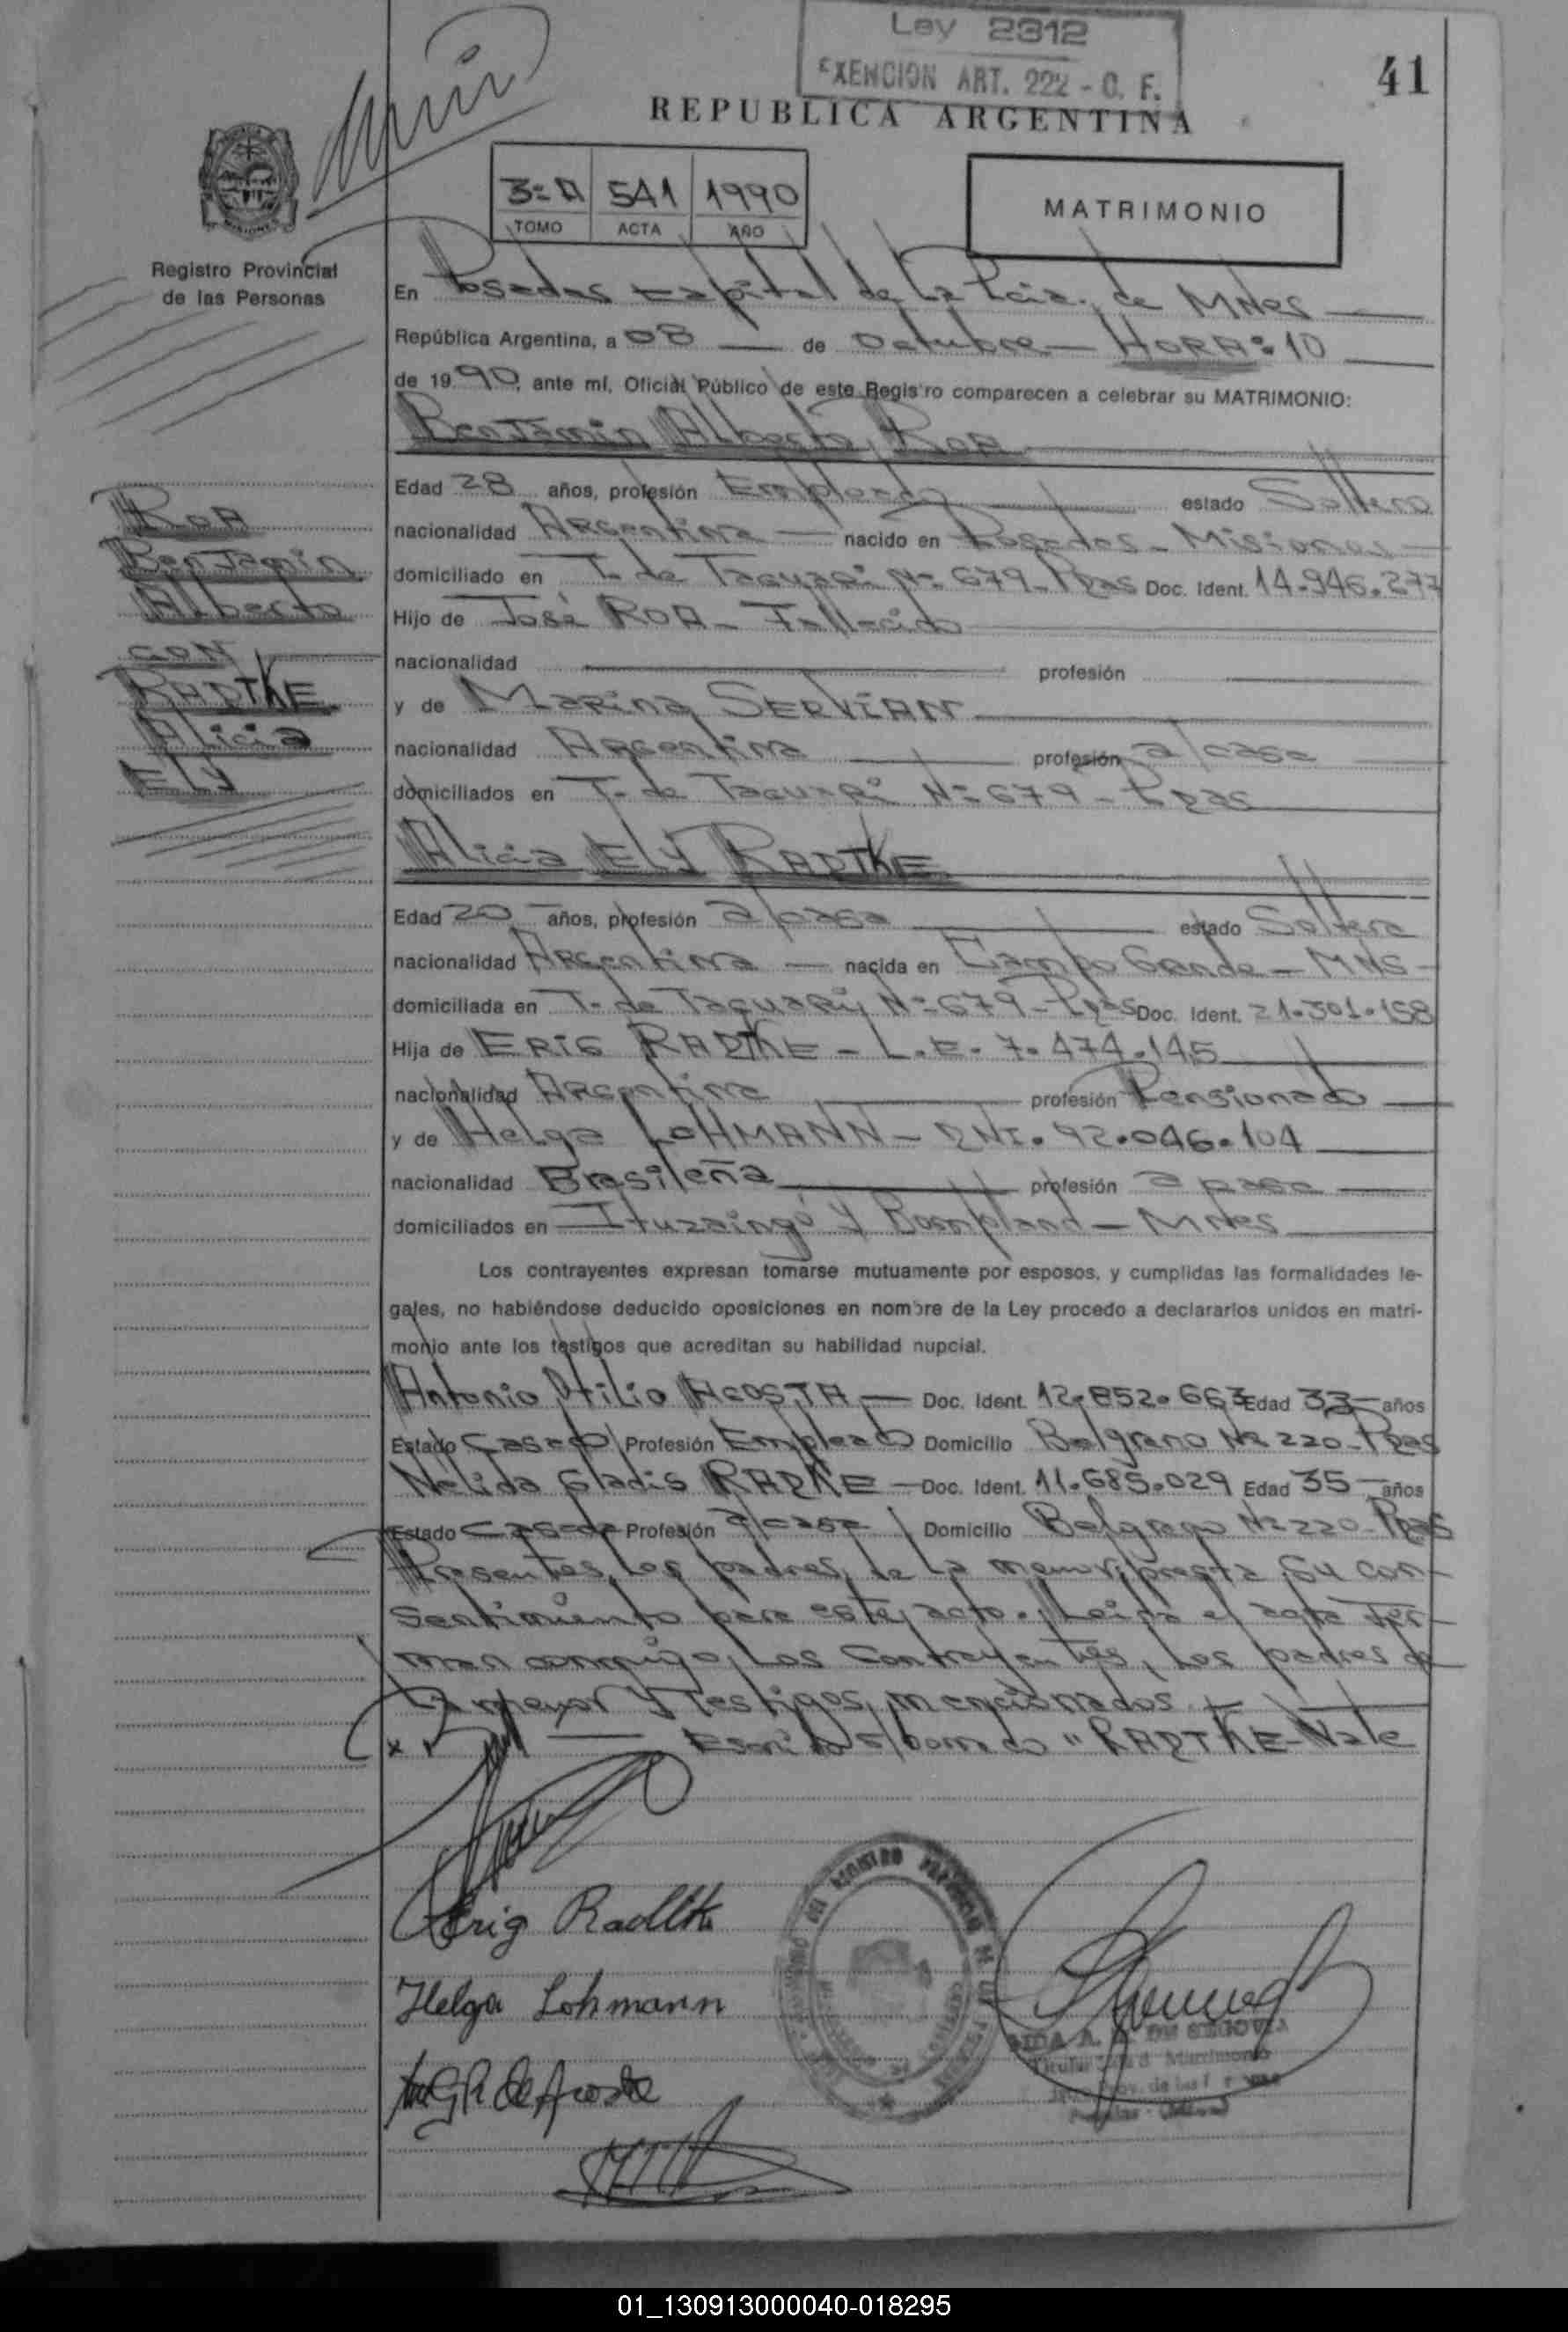 Ley 2312
EXENCION ART. 222 - C. F.
41
REPUBLICA ARGENTINA
3=A 541 1990
TOMO ACTA AÑO
MATRIMONIO
MISIONES
Registro Provincial
de las Personas
En Posadas Capital de La Pcia. de MNes
República Argentina, a 08 de Octubre HORA: 10
de 1990, ante mí, Oficial Público de este Registro comparecen a celebrar su MATRIMONIO:
Benjamin Alberto ROA
Edad 28 años, profesión Empleado estado Soltero
nacionalidad Argentina nacido en Posadas - Misiones
domiciliado en T. de Taguari N= 679 - Pdas Doc. Ident. 14.946.277
Hijo de José ROA - Fallecido
nacionalidad profesión
y de Marina SERVIAN
nacionalidad Argentina profesión a/casa
domiciliados en T. de Taguari N= 679 - Pdas
ROA
Benjamin
Alberto
CON
RADTKE
Alicia
ELY
Alicia ELY RADTKE
Edad 20 años, profesión a/casa estado Soltera
nacionalidad Argentina nacida en Campo Grande - MNS
domiciliada en T. de Taguary N= 679 - Pdas Doc. Ident. 21.301.158
Hija de ERIG RADTKE - L.E. 7.474.145
nacionalidad Argentina profesión Pensionado
y de Helga LOHMANN - DNI. 92.046.104
nacionalidad Brasileña profesión a casa
domiciliados en Ituzaingó y Bompland - MNes
Los contrayentes expresan tomarse mutuamente por esposos, y cumplidas las formalidades le-
gales, no habiéndose deducido oposiciones en nombre de la Ley procedo a declararlos unidos en matri-
monio ante los testigos que acreditan su habilidad nupcial.
Antonio Otilio ACOSTA Doc. Ident. 12.852.663 Edad 33 años
Estado Casado Profesión Empleado Domicilio Belgrano Nº 220 - Pdas
Nélida Gladis RADKE Doc. Ident. 11.685.029 Edad 35 años
Estado Casada Profesión a/casa Domicilio Belgrano Nº 220 - Pdas
Presentes los padres de la menor, presta su con-
sentimiento para este acto. Leida el acta fir-
man conmigo, los Contrayentes, los padres de
La menor y Testigos mencionados.
Escrito s/borrado "RADTKE - Vale
Erig Radtke
Helga Lohmann
de Acosta
AIDA A. DE SEGOVIA
01_130913000040-018295